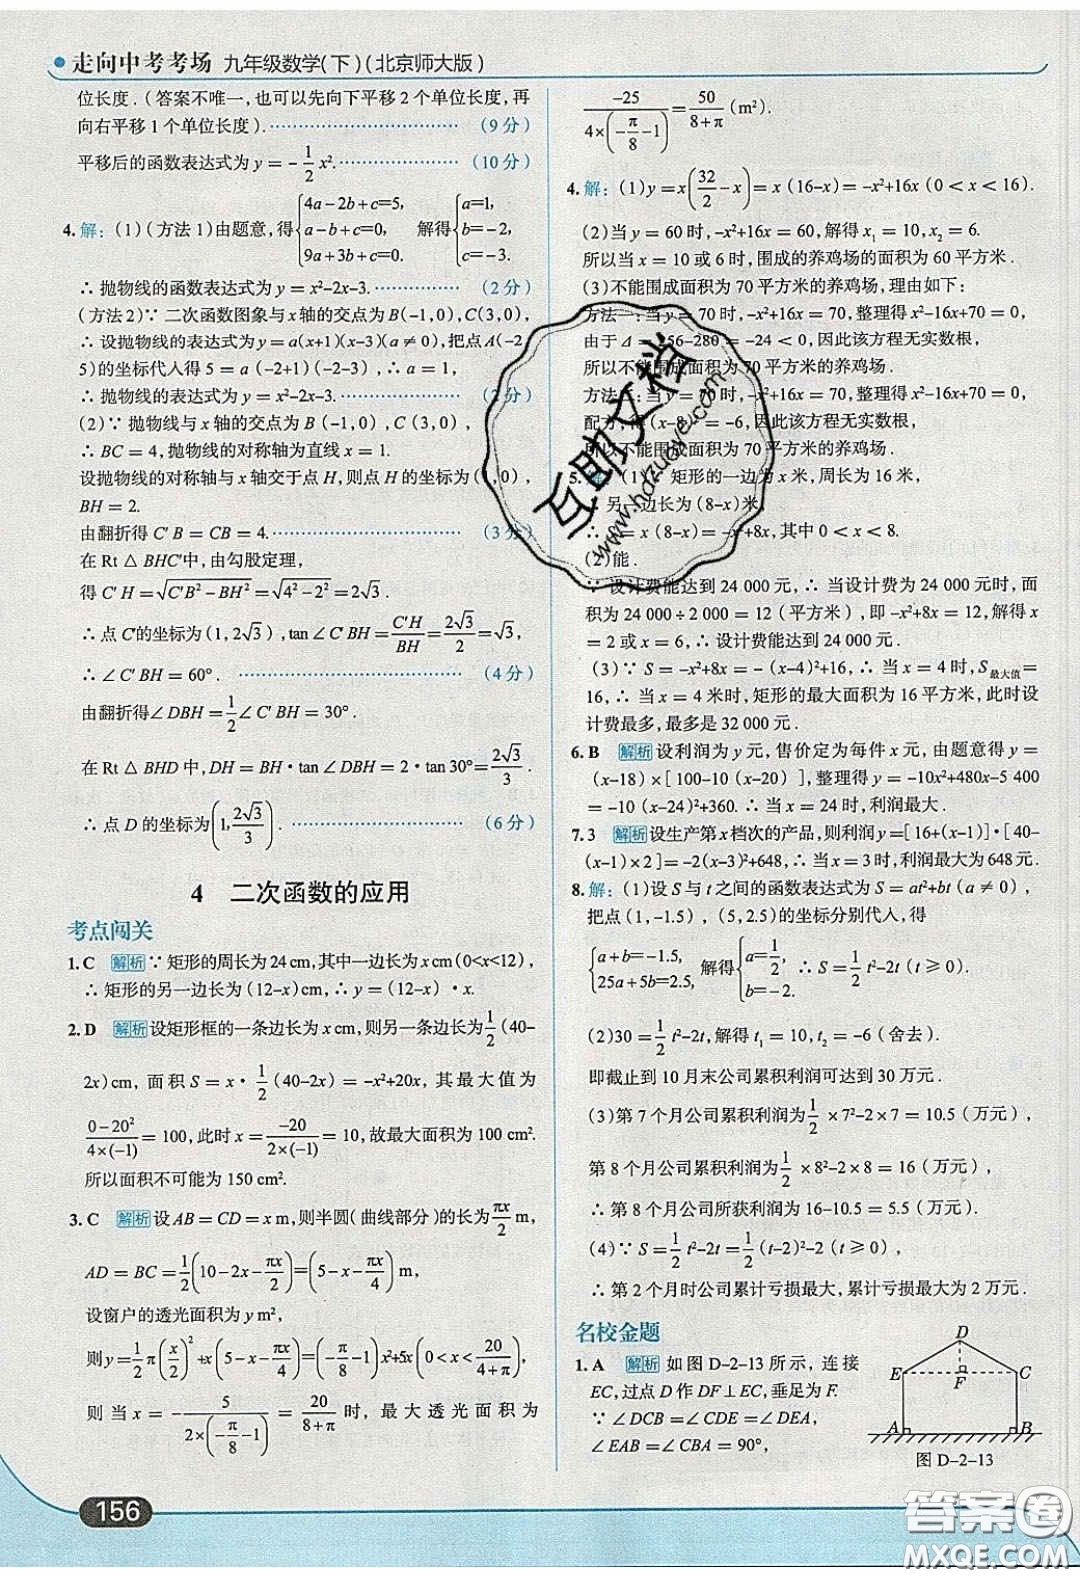 走向中考考场 九年级数学(下)(北京师大版)
位长度.(答案不唯一,也可以先向下平移2个单位长度,再
向右平移1个单位长度).…………(9分)
平移后的函数表达式为y=-1/2 x².…………(10分)
4.解:(1)(方法1)由题意,得{4a-2b+c=5, a-b+c=0, 9a+3b+c=0. 解得{a=1, b=-2, c=-3.
∴抛物线的函数表达式为y=x²-2x-3.…………(2分)
(方法2)∵二次函数图象与x轴的交点为B(-1,0),C(3,0),
∴设抛物线的表达式为y=a(x+1)(x-3)(a≠0),把点A(-2,
5)的坐标代入得5=a(-2+1)(-2-3),∴a=1,
∴抛物线的表达式为y=x²-2x-3.…………(2分)
(2)∵抛物线与x轴的交点为B(-1,0),C(3,0),
∴BC=4,抛物线的对称轴为直线x=1.
设抛物线的对称轴与x轴交于点H,则点H的坐标为(1,0),
BH=2.
由翻折得C'B=CB=4.…………(3分)
在Rt△BHC'中,由勾股定理,
得C'H=√(C'B²-BH²)=√(4²-2²)=2√3.
∴点C'的坐标为(1,2√3),tan∠C'BH=C'H/BH=2√3/2=√3,
∴∠C'BH=60°.…………(4分)
由翻折得∠DBH=1/2∠C'BH=30°.
在Rt△BHD中,DH=BH·tan∠DBH=2·tan30°=2√3/3.
∴点D的坐标为(1,2√3/3).…………(6分)
4 二次函数的应用
考点闯关
1.C 解析 ∵矩形的周长为24cm,其中一边长为xcm(0<x<12),
∴矩形的另一边长为(12-x)cm,∴y=(12-x)·x.
2.D 解析 设矩形框的一条边长为xcm,则另一条边长为1/2(40-
2x)cm,面积S=x·1/2(40-2x)=-x²+20x,其最大值为
(0-20²)/(4×(-1))=100,此时x=-20/(2×(-1))=10,故最大面积为100cm².
所以面积不可能为150cm².
3.C 解析 设AB=CD=xm,则半圆(曲线部分)的长为πx/2 m,
AD=BC=1/2(10-2x-πx/2)=(5-x-πx/4)m,
设窗户的透光面积为ym²,
则y=1/2π(x/2)²+x(5-x-πx/4)=(-π/8-1)x²+5x(0<x<20/(4+π)),
则当x=-5/(2×(-π/8-1))=20/(8+π)时,最大透光面积为
-25/(4×(-π/8-1))=50/(8+π)(m²).
4.解:(1)y=x(32/2-x)=x(16-x)=-x²+16x(0<x<16).
(2)当y=60时,-x²+16x=60,解得x₁=10,x₂=6.
所以当x=10或6时,围成的养鸡场的面积为60平方米.
(3)不能围成面积为70平方米的养鸡场.理由如下:
方法一:当y=70时,-x²+16x=70,整理得x²-16x+70=0,
由于Δ=256-280=-24<0,因此该方程无实数根,
所以不能围成面积为70平方米的养鸡场.
方法二:当y=70时,-x²+16x=70,整理得x²-16x=-70,
配方,得(x-8)²=-6,因此该方程无实数根,
所以不能围成面积为70平方米的养鸡场.
5.解:(1)∵矩形的一边为x米,周长为16米,
∴另一边长为(8-x)米,
∴S=x(8-x)=-x²+8x,其中0<x<8.
(2)能.
∵设计费能达到24 000元,∴当设计费为24 000元时,面
积为24 000÷2 000=12(平方米),即-x²+8x=12,解得x
=2或x=6,∴设计费能达到24 000元.
(3)∵S=-x²+8x=-(x-4)²+16,∴当x=4时,S最大值=
16,∴当x=4米时,矩形的最大面积为16平方米,此时设
计费最多,最多是32 000元.
6.B 解析 设利润为y元,售价定为每件x元,由题意得y=
(x-18)×[100-10(x-20)],整理得y=-10x²+480x-5 400
=-10(x-24)²+360.∴当x=24时,利润最大.
7.3 解析 设生产第x档次的产品,则利润y=[16+(x-1)]·[40-
(x-1)×2]=-2(x-3)²+648,∴当x=3时,利润最大为648元.
8.解:(1)设S与t之间的函数表达式为S=at²+bt(a≠0),
把点(1,-1.5),(5,2.5)的坐标分别代入,得
{a+b=-1.5, 25a+5b=2.5, 解得{a=1/2, b=-2. ∴S=1/2t²-2t(t≥0).
(2)30=1/2t²-2t,解得t₁=10,t₂=-6(舍去).
即截止到10月末公司累积利润可达到30万元.
(3)第7个月公司累积利润为1/2×7²-2×7=10.5(万元),
第8个月公司累积利润为1/2×8²-2×8=16(万元),
∴第8个月公司所获利润为16-10.5=5.5(万元).
(4)∵S=1/2t²-2t=1/2(t-2)²-2(t≥0),
∴第2个月时公司累计亏损最大,累计亏损最大为2万元.
名校金题
1.A 解析 如图D-2-13所示,连接
EC,过点D作DF⊥EC,垂足为F.
∵∠DCB=∠CDE=∠DEA,
∠EAB=∠CBA=90°,
D
E
F
C
A
B
图D-2-13
互助文档
www.hdzuoye.com
156
答案圈
MXQE.COM